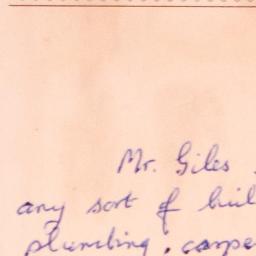 Mr. Giles
any sort of buil
plumbing, carpe